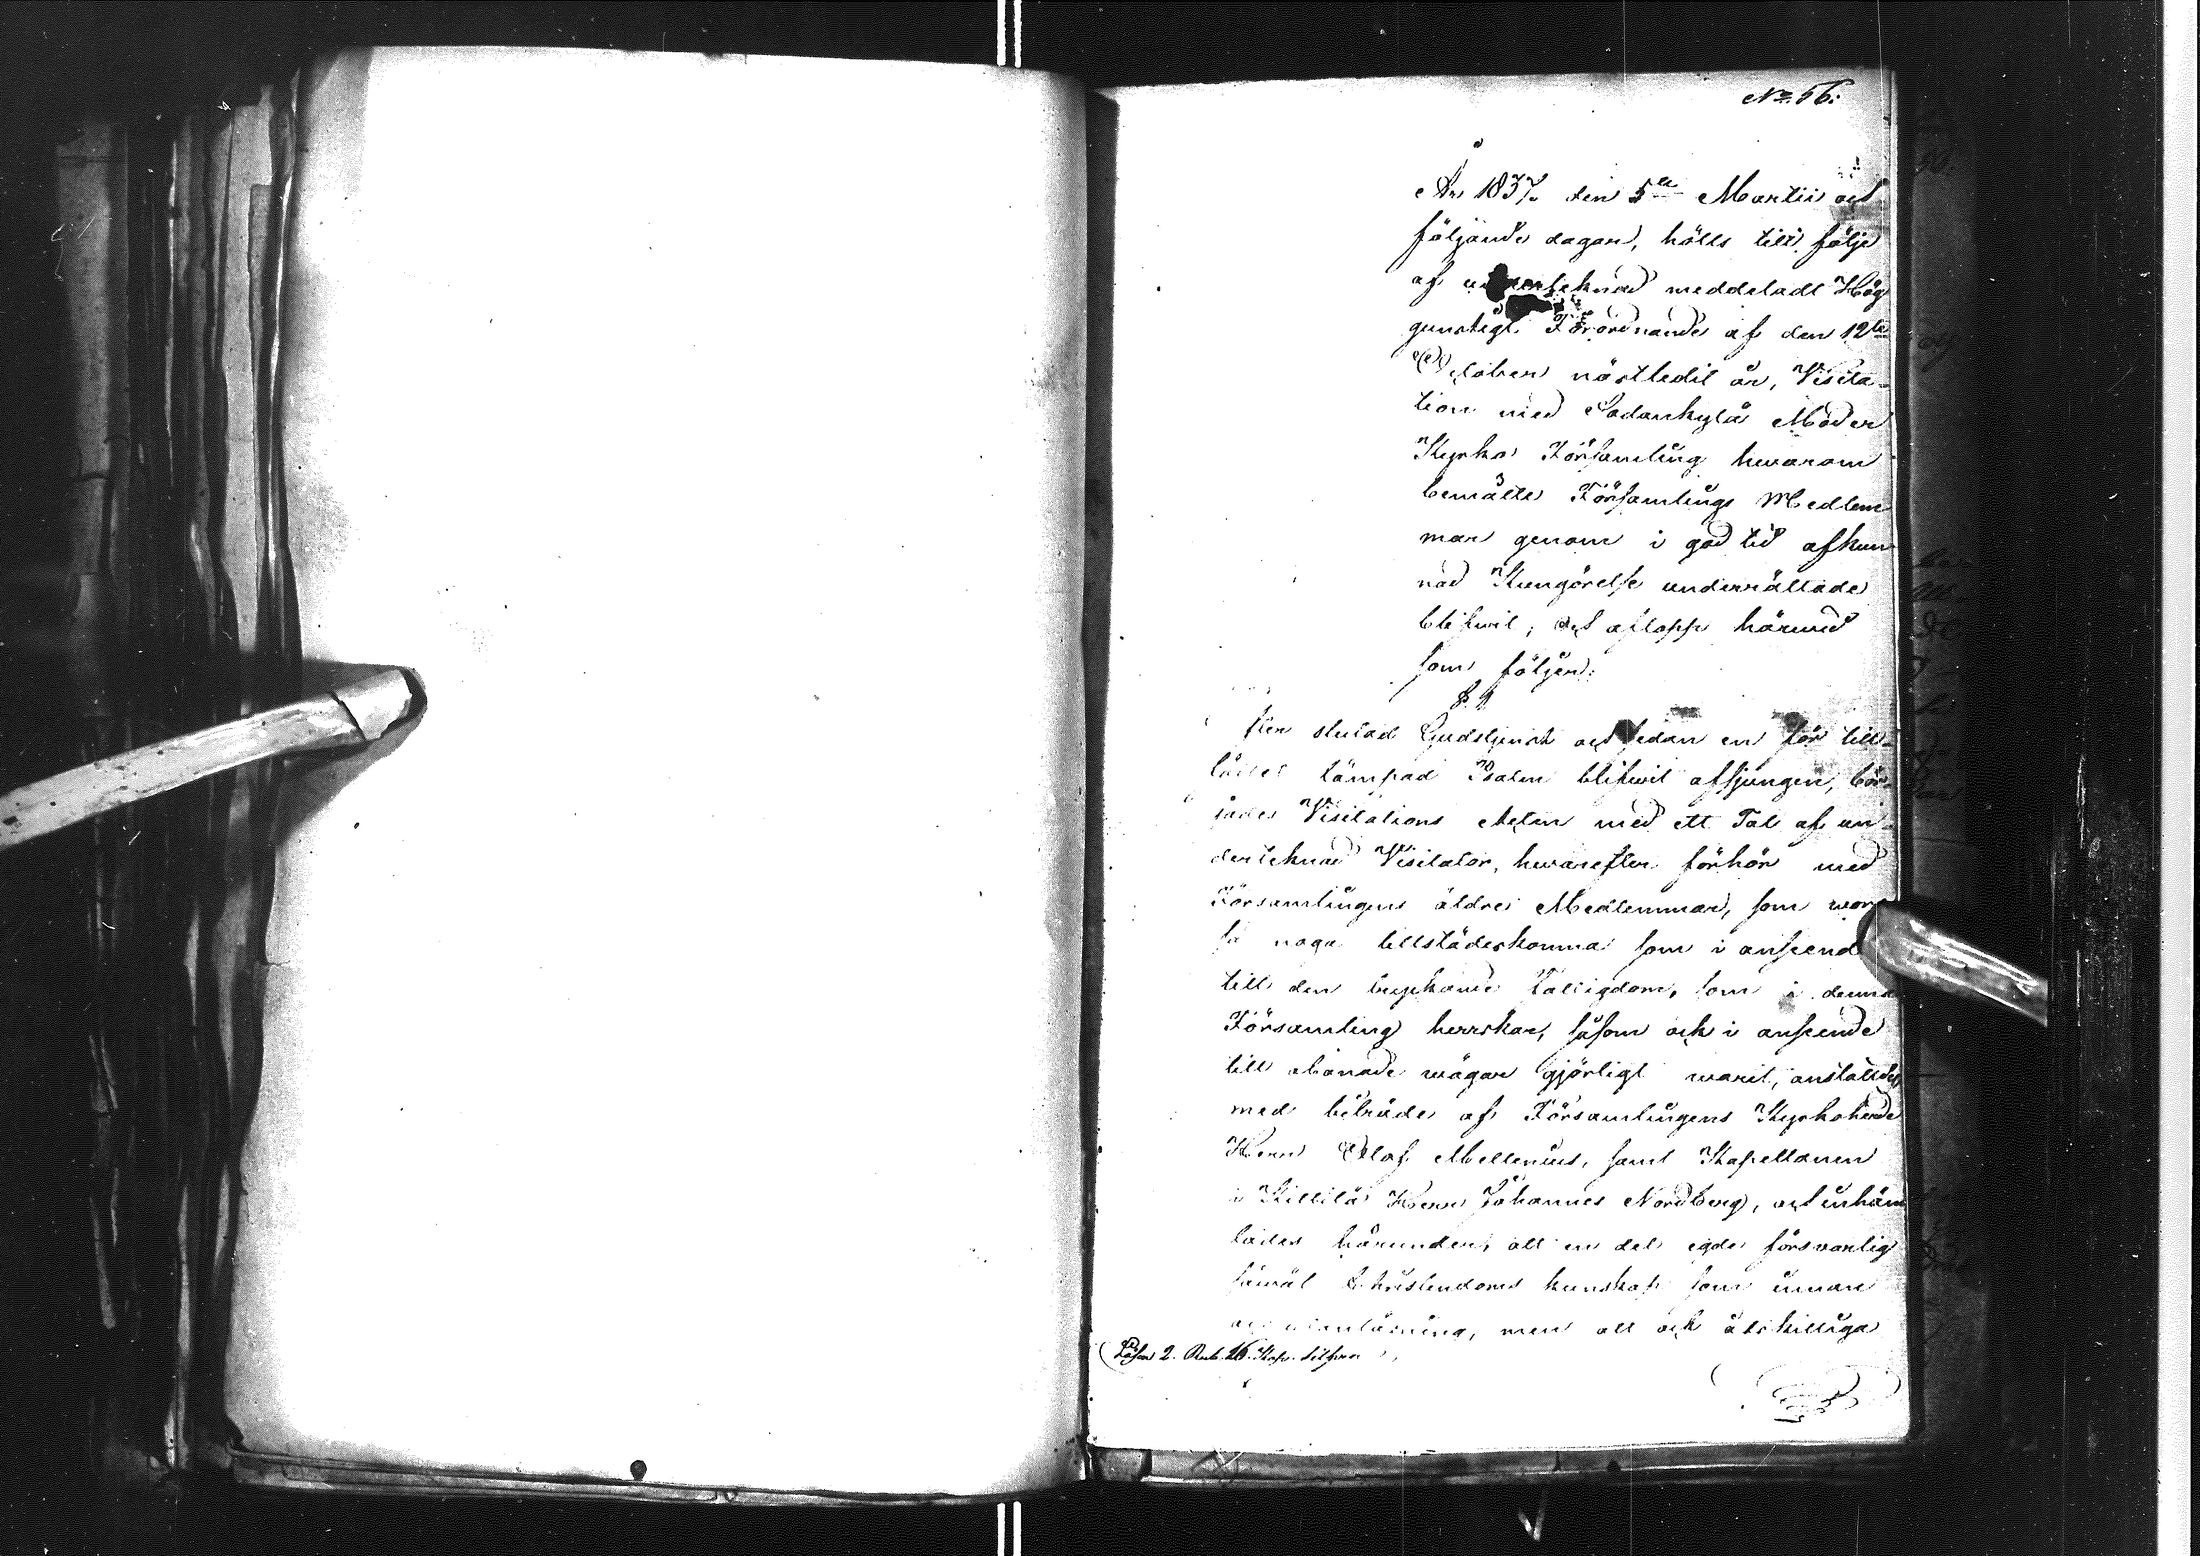 No 56.
År 1837. den 5te Martii och
följande dagar, hölls till följe
af undertecknad meddeladt Hög
gunstigt Förordnande af den 12te
October nästledit år, Visita-
tion med Sodankylä Moder
Kyrko Församling hwarom
bemälte Församlings Medlem
mar genom i god tid afkun
nad Kungörelse underrättade
blifwit; och aflopp härmed
som följer:
§. 1
fter slutad Gudstjenst och sedan en för till-
fället lämpad Psalm blifwit afsjungen, bör-
jades Visitations Acten med ett Tal af un-
dertecknad Visitator, hwarefter förhör med
Församlingens äldre Medlemmar, som woro
så noga tillstädeskomna som i anseend
till den tryckande fattigdom, som i denna
Församling herrskar, såsom ock i anseende
till obanade wägar gjörligt warit, anställdes
med biträde af Församlingens Kyrkoherde
Herr Olof Mellenius, samt Kapellanen
i Kittilä Herr Johannes Nordberg, och inhäm
tades härunder, att en del egde försvarlig
såwäl Christendoms kunskap som innan
och utanläsning, men att ock åtskilliga
(Låfen 2. Rub. 16. Kap.